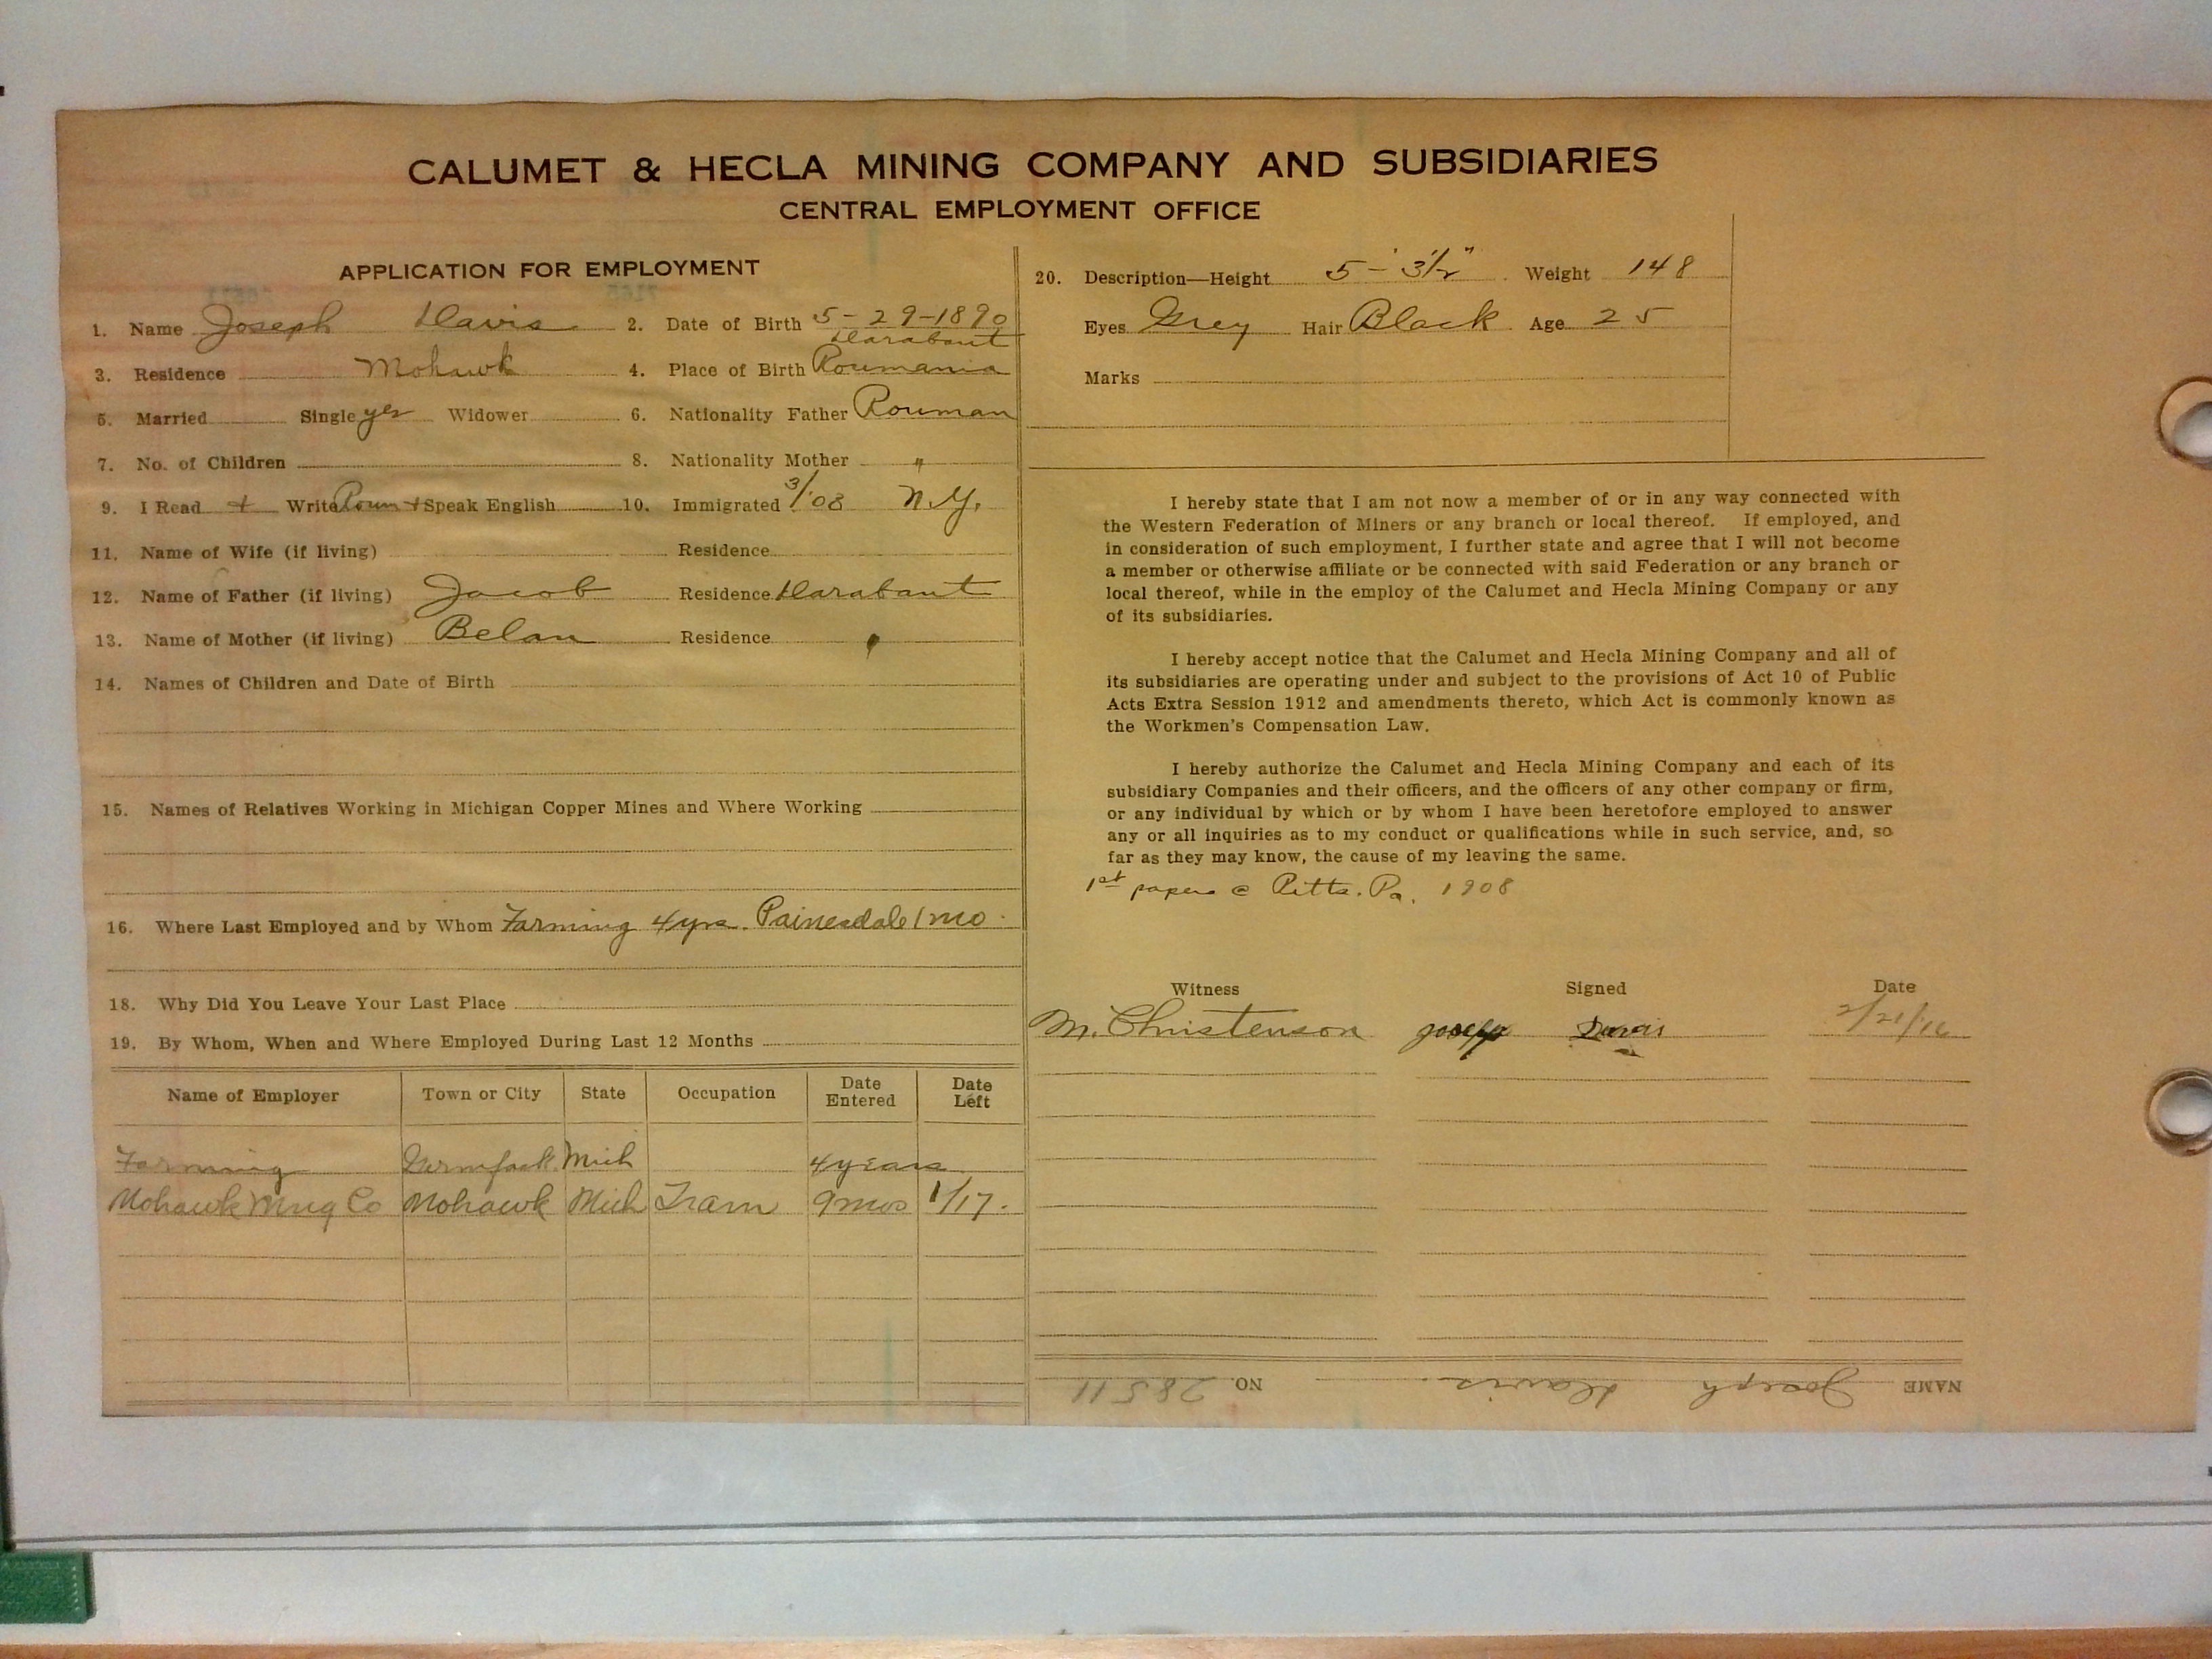 CALUMET & HECLA MINING COMPANY AND SUBSIDIARIES
CENTRAL EMPLOYMENT OFFICE
APPLICATION FOR EMPLOYMENT
1. Name Joseph Davis 2. Date of Birth 5-29-1890
Darabant
3. Residence Mohawk 4. Place of Birth Roumania
5. Married Single yes Widower 6. Nationality Father Rouman
7. No. of Children 8. Nationality Mother "
9. I Read + Write Roum + Speak English 10. Immigrated 3/'08 N.Y.
11. Name of Wife (if living) Residence
12. Name of Father (if living) Jacob Residence Darabant
13. Name of Mother (if living) Belan Residence "
14. Names of Children and Date of Birth
15. Names of Relatives Working in Michigan Copper Mines and Where Working
16. Where Last Employed and by Whom Farming 4 yrs. Painesdale 1 mo.
18. Why Did You Leave Your Last Place
19. By Whom, When and Where Employed During Last 12 Months
Name of Employer Town or City State Occupation Date Entered Date Left
Farming Mich 4 years
Mohawk Mng Co Mohawk Mich Tram 9 mos 1/17.
20. Description—Height 5'-3½" Weight 148
Eyes Grey Hair Black Age 25
Marks
I hereby state that I am not now a member of or in any way connected with
the Western Federation of Miners or any branch or local thereof. If employed, and
in consideration of such employment, I further state and agree that I will not become
a member or otherwise affiliate or be connected with said Federation or any branch or
local thereof, while in the employ of the Calumet and Hecla Mining Company or any
of its subsidiaries.
I hereby accept notice that the Calumet and Hecla Mining Company and all of
its subsidiaries are operating under and subject to the provisions of Act 10 of Public
Acts Extra Session 1912 and amendments thereto, which Act is commonly known as
the Workmen's Compensation Law.
I hereby authorize the Calumet and Hecla Mining Company and each of its
subsidiary Companies and their officers, and the officers of any other company or firm,
or any individual by which or by whom I have been heretofore employed to answer
any or all inquiries as to my conduct or qualifications while in such service, and, so
far as they may know, the cause of my leaving the same.
1st papers @ Pitts. Pa. 1908
Witness Signed Date
M. Christenson Joseph Davis 2/21/16
NAME Joseph Davis. NO. 28511